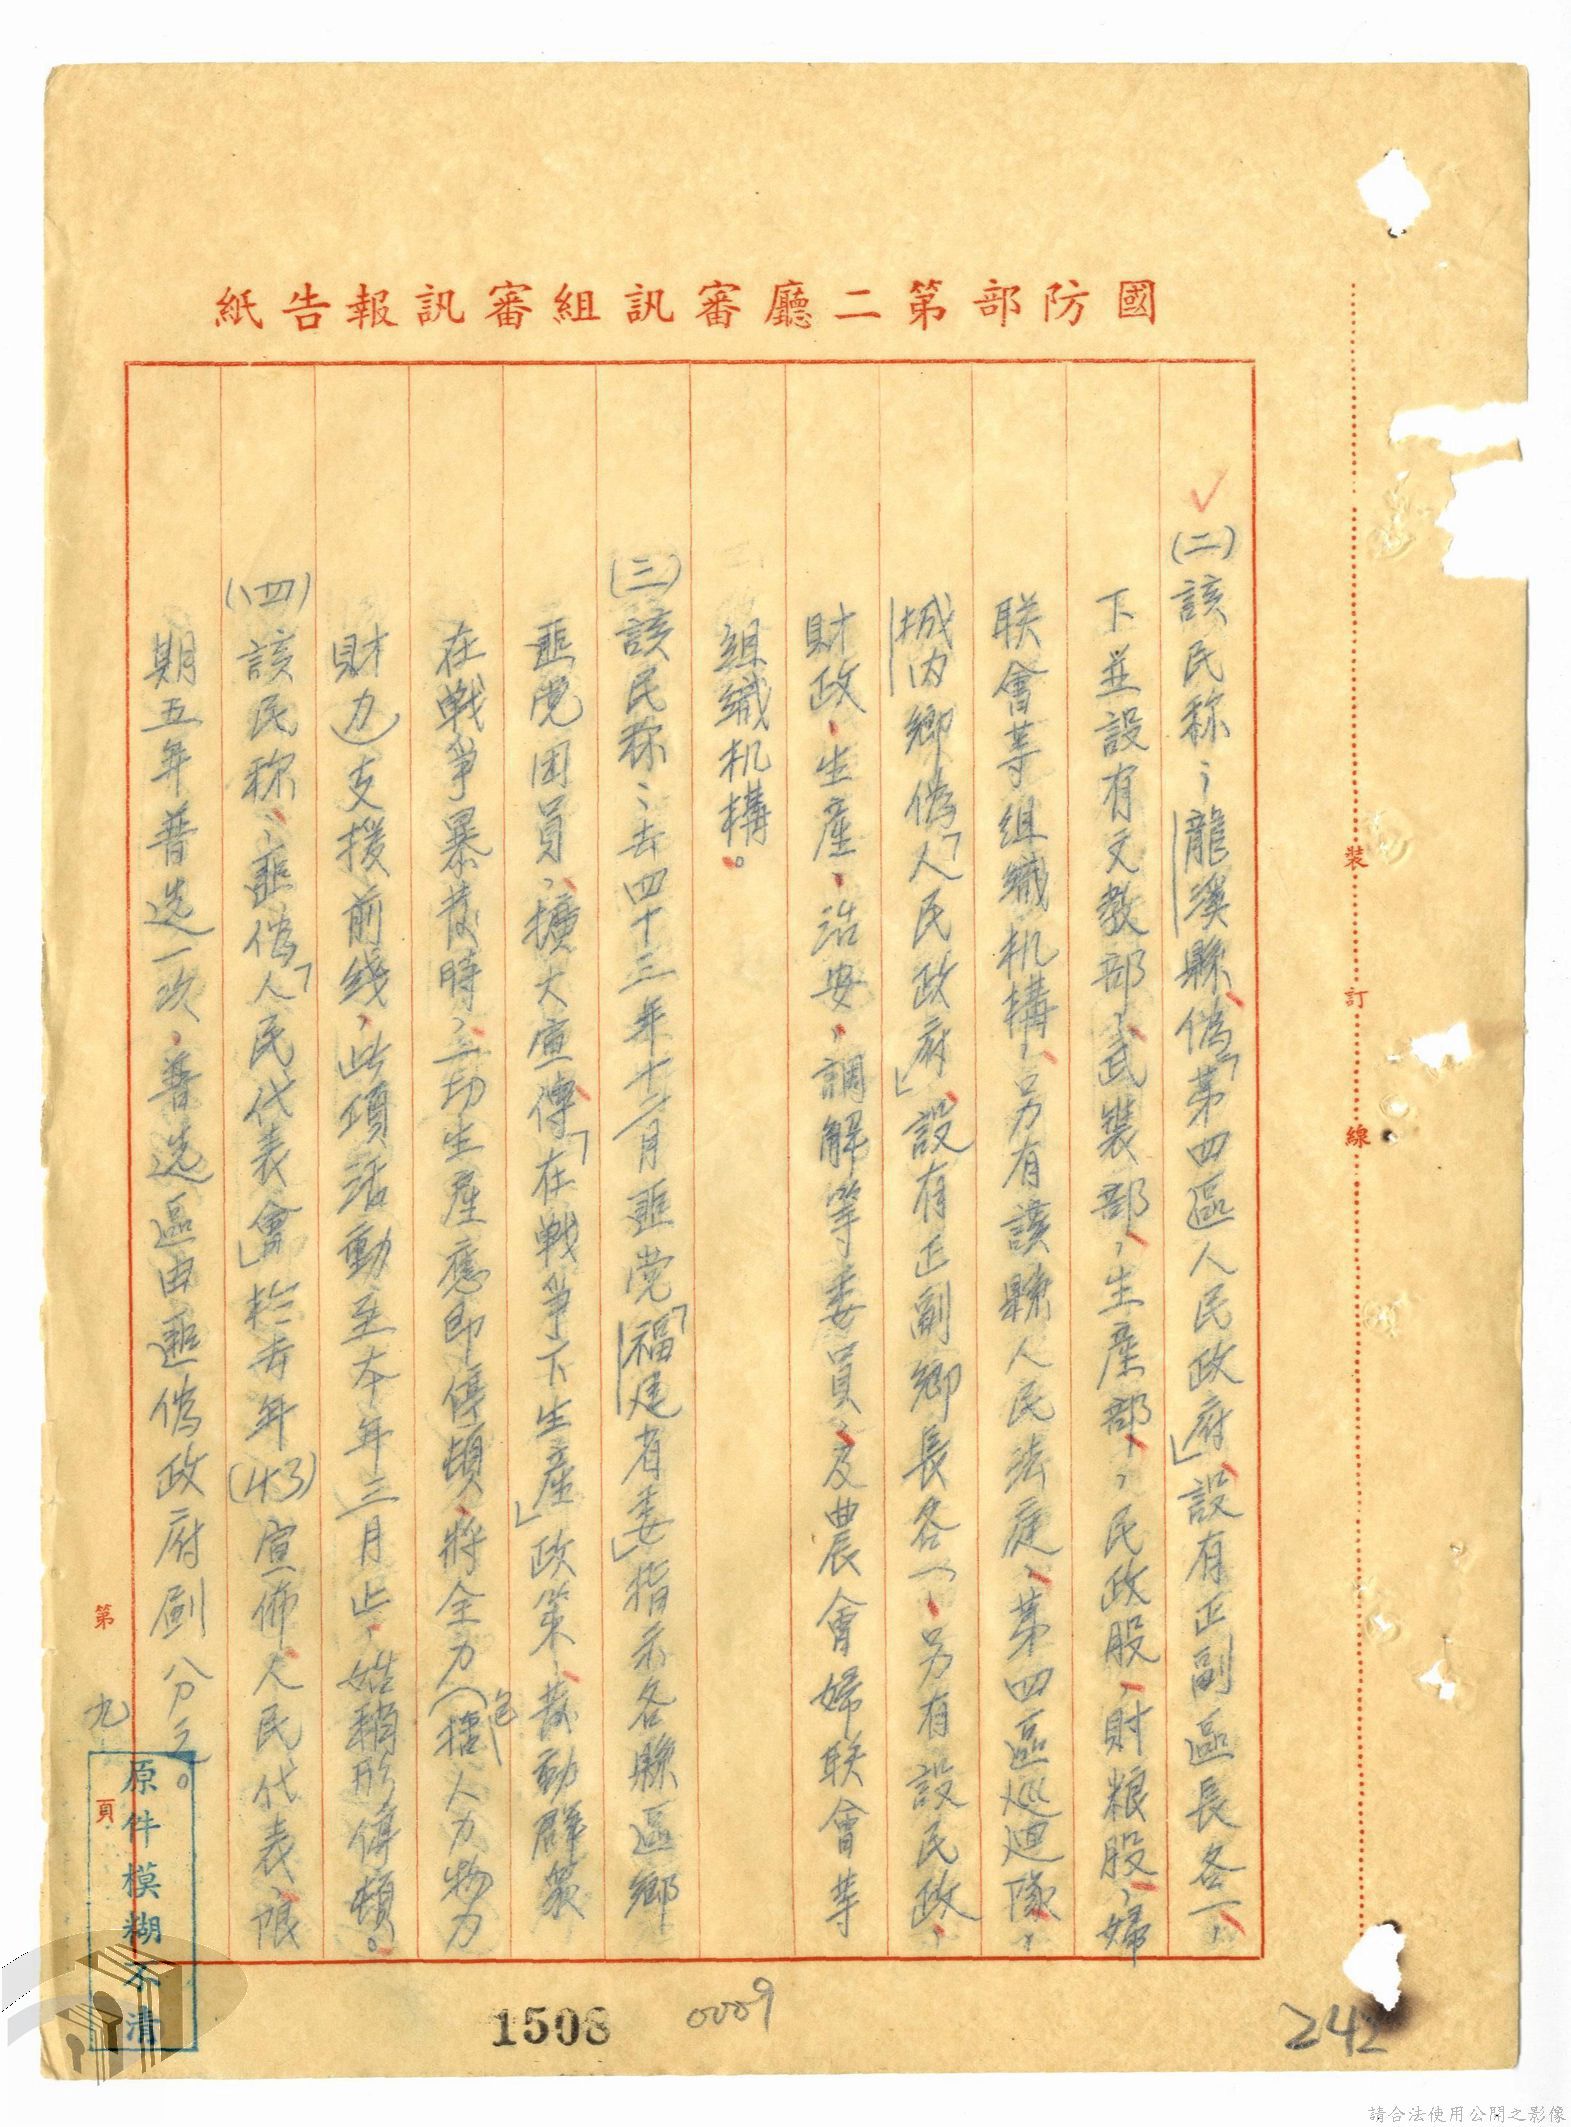 國防部第二廳審訊組審訊報告紙
(二)該民称:龍溪縣偽「第四區人民政府」設有正副區長各一,
下並設有文教部,武裝部,生產部,民政股,財粮股,婦
联會等组織机構,另有該縣人民法庭,第四區巡迴隊,
城内鄉偽「人民政府」設有正副鄉長各一,另有設民政,
財政,生產,治安,調解等委員,及農會婦联會等
组織机構。
(三)該民称:去四十三年十二月匪党「福建省委」指示各縣區鄉
匪党团員,擴大宣傳「在戰爭下生產」政策,發動群眾
在戰爭暴發時,一切生產應即停頓,將全力(包括人力物力
財力)支援前线,此項活動至本年三月止,始稍形停頓。
(四)該民称:匪偽「人民代表會」於去年(43)宣佈人民代表,限
期五年普选一次,普选區由匪偽政府劃分之。
裝
訂
線
第九頁
原件模糊不清
1508
0009
242
請合法使用公開之影像